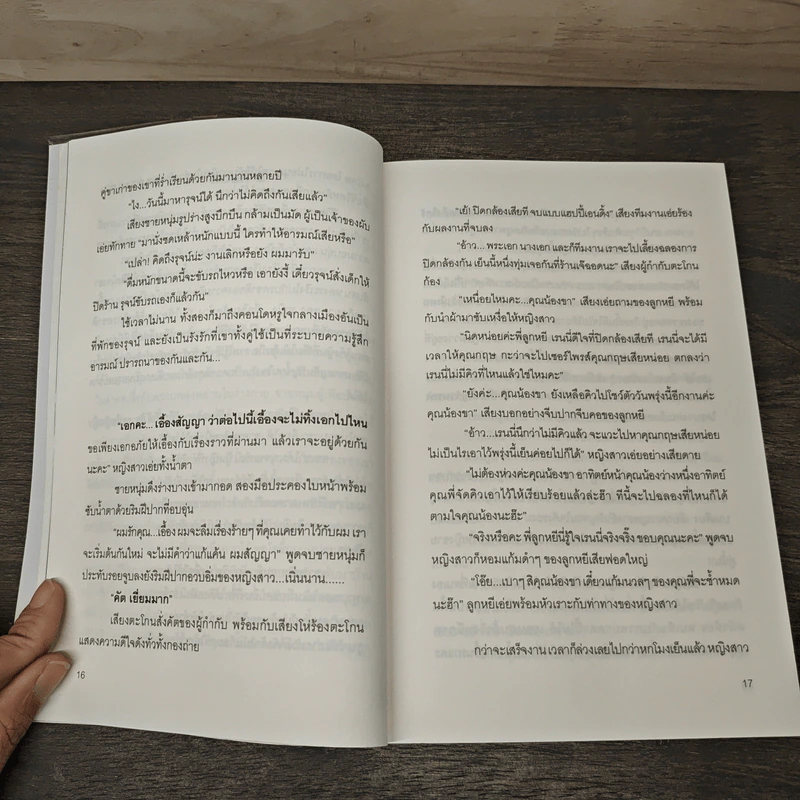 คู่ขาเก่าของเขาที่ร่ำเรียนด้วยกันมานานหลายปี
"ไง...วันนี้มาหารุจน์ได้ นึกว่าไม่คิดถึงกันเสียแล้ว"
เสียงชายหนุ่มรูปร่างสูงบึกบึน กล้ามเป็นมัด ผู้เป็นเจ้าของผับ
เอ่ยทักทาย "มานั่งซดเหล้าหนักแบบนี้ ใครทำให้อารมณ์เสียหรือ"
"เปล่า! คิดถึงรุจน์น่ะ งานเลิกหรือยัง ผมมารับ"
"ดื่มหนักขนาดนี้จะขับรถไหวหรือ เอายังงี้ เดี๋ยวรุจน์สั่งเด็กให้
ปิดร้าน รุจน์ขับรถเองก็แล้วกัน"
ใช้เวลาไม่นาน ทั้งสองก็มาถึงคอนโดหรูใจกลางเมืองอันเป็น
ที่พักของรุจน์ และยังเป็นรังรักที่เขาทั้งคู่ใช้เป็นที่ระบายความรู้สึก
อารมณ์ ปรารถนาของกันและกัน...
"เอกคะ... เอื้องสัญญา ว่าต่อไปนี้เอื้องจะไม่ทิ้งเอกไปไหน
ขอเพียงเอกอภัยให้เอื้องกับเรื่องราวที่ผ่านมา แล้วเราจะอยู่ด้วยกัน
นะคะ" หญิงสาวเอ่ยทั้งน้ำตา
ชายหนุ่มดึงร่างบางเข้ามากอด สองมือประคองใบหน้าพร้อม
ซับน้ำตาด้วยริมฝีปากที่อบอุ่น
"ผมรักคุณ...เอื้อง ผมจะลืมเรื่องร้ายๆ ที่คุณเคยทำไว้กับผม เรา
จะเริ่มต้นกันใหม่ จะไม่มีคำว่าแก้แค้น ผมสัญญา" พูดจบชายหนุ่มก็
ประทับรอยจูบลงยังริมฝีปากอวบอิ่มของหญิงสาว...เนิ่นนาน......
"คัต เยี่ยมมาก"
เสียงตะโกนสั่งคัตของผู้กำกับ พร้อมกับเสียงโห่ร้องตะโกน
แสดงความดีใจดังทั่วทั้งกองถ่าย
16
"เย้! ปิดกล้องเสียที จบแบบแฮปปี้เอนดิ้ง" เสียงทีมงานเอ่ยร้อง
กับผลงานที่จบลง
"อ้าว... พระเอก นางเอก และก็ทีมงาน เราจะไปเลี้ยงฉลองการ
ปิดกล้องกัน เย็นนี้หนึ่งทุ่มเจอกันที่ร้านเจ๊ฉอดนะ" เสียงผู้กำกับตะโกน
ก้อง
"เหนื่อยไหมคะ...คุณน้องขา" เสียงเอ่ยถามของลูกหยี พร้อม
กับนำผ้ามาซับเหงื่อให้หญิงสาว
"นิดหน่อยค่ะพี่ลูกหยี เรนนี่ดีใจที่ปิดกล้องเสียที เรนนี่จะได้มี
เวลาให้คุณกฤษ กะว่าจะไปเซอร์ไพรส์คุณกฤษเสียหน่อย ตกลงว่า
เรนนี่ไม่มีคิวที่ไหนแล้วใช่ไหมคะ"
"ยังค่ะ...คุณน้องขา ยังเหลือคิวไปโชว์ตัววันพรุ่งนี้อีกงานค่ะ
คุณน้องขา" เสียงบอกอย่างจีบปากจีบคอของลูกหยี
"อ้าว...เรนนี่นึกว่าไม่มีคิวแล้ว จะแวะไปหาคุณกฤษเสียหน่อย
ไม่เป็นไรเอาไว้พรุ่งนี้เย็นค่อยไปก็ได้" หญิงสาวเอ่ยอย่างเสียดาย
"ไม่ต้องห่วงค่ะคุณน้องขา อาทิตย์หน้าคุณน้องว่างหนึ่งอาทิตย์
คุณพี่จัดคิวเอาไว้ให้เรียบร้อยแล้วล่ะฮ้า ทีนี้จะไปฉลองที่ไหนก็ได้
ตามใจคุณน้องนะฮ๊ะ"
"จริงหรือคะ พี่ลูกหยีนี่รู้ใจเรนนี่จริงจริ๊ง ขอบคุณนะคะ" พูดจบ
หญิงสาวก็หอมแก้มดำๆ ของลูกหยีเสียฟอดใหญ่
"โอ๊ย...เบาๆ สิคุณน้องขา เดี๋ยวแก้มนวลๆ ของคุณพี่จะช้ำหมด
นะฮ้า" ลูกหยีเอ่ยพร้อมหัวเราะกับท่าทางของหญิงสาว
กว่าจะเสร็จงาน เวลาก็ล่วงเลยไปกว่าหกโมงเย็นแล้ว หญิงสาว
17